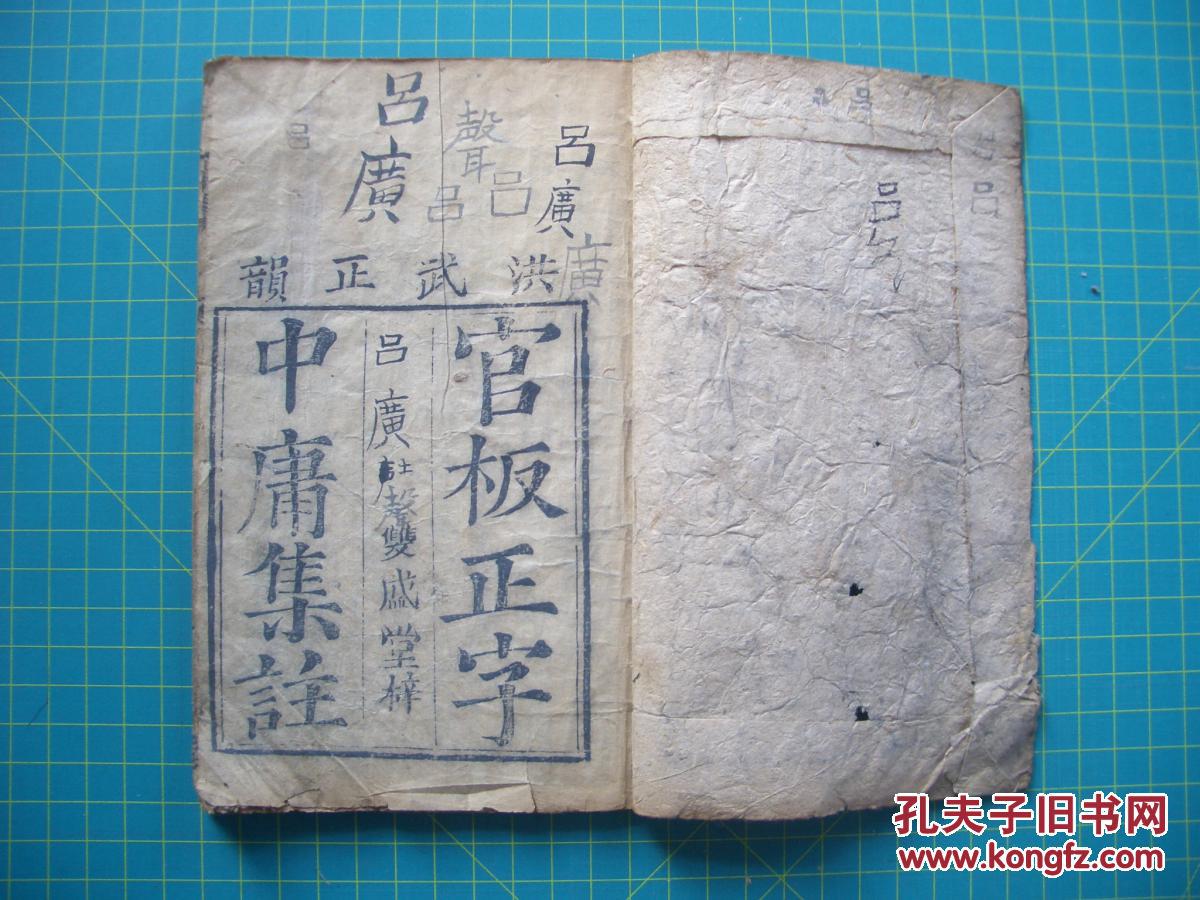 呂廣
聲
呂呂
呂廣
廣
呂
洪武正韻
官板正字
呂廣註聲雙盛堂梓
中庸集註
呂
呂
呂
孔夫子旧书网
www.kongfz.com